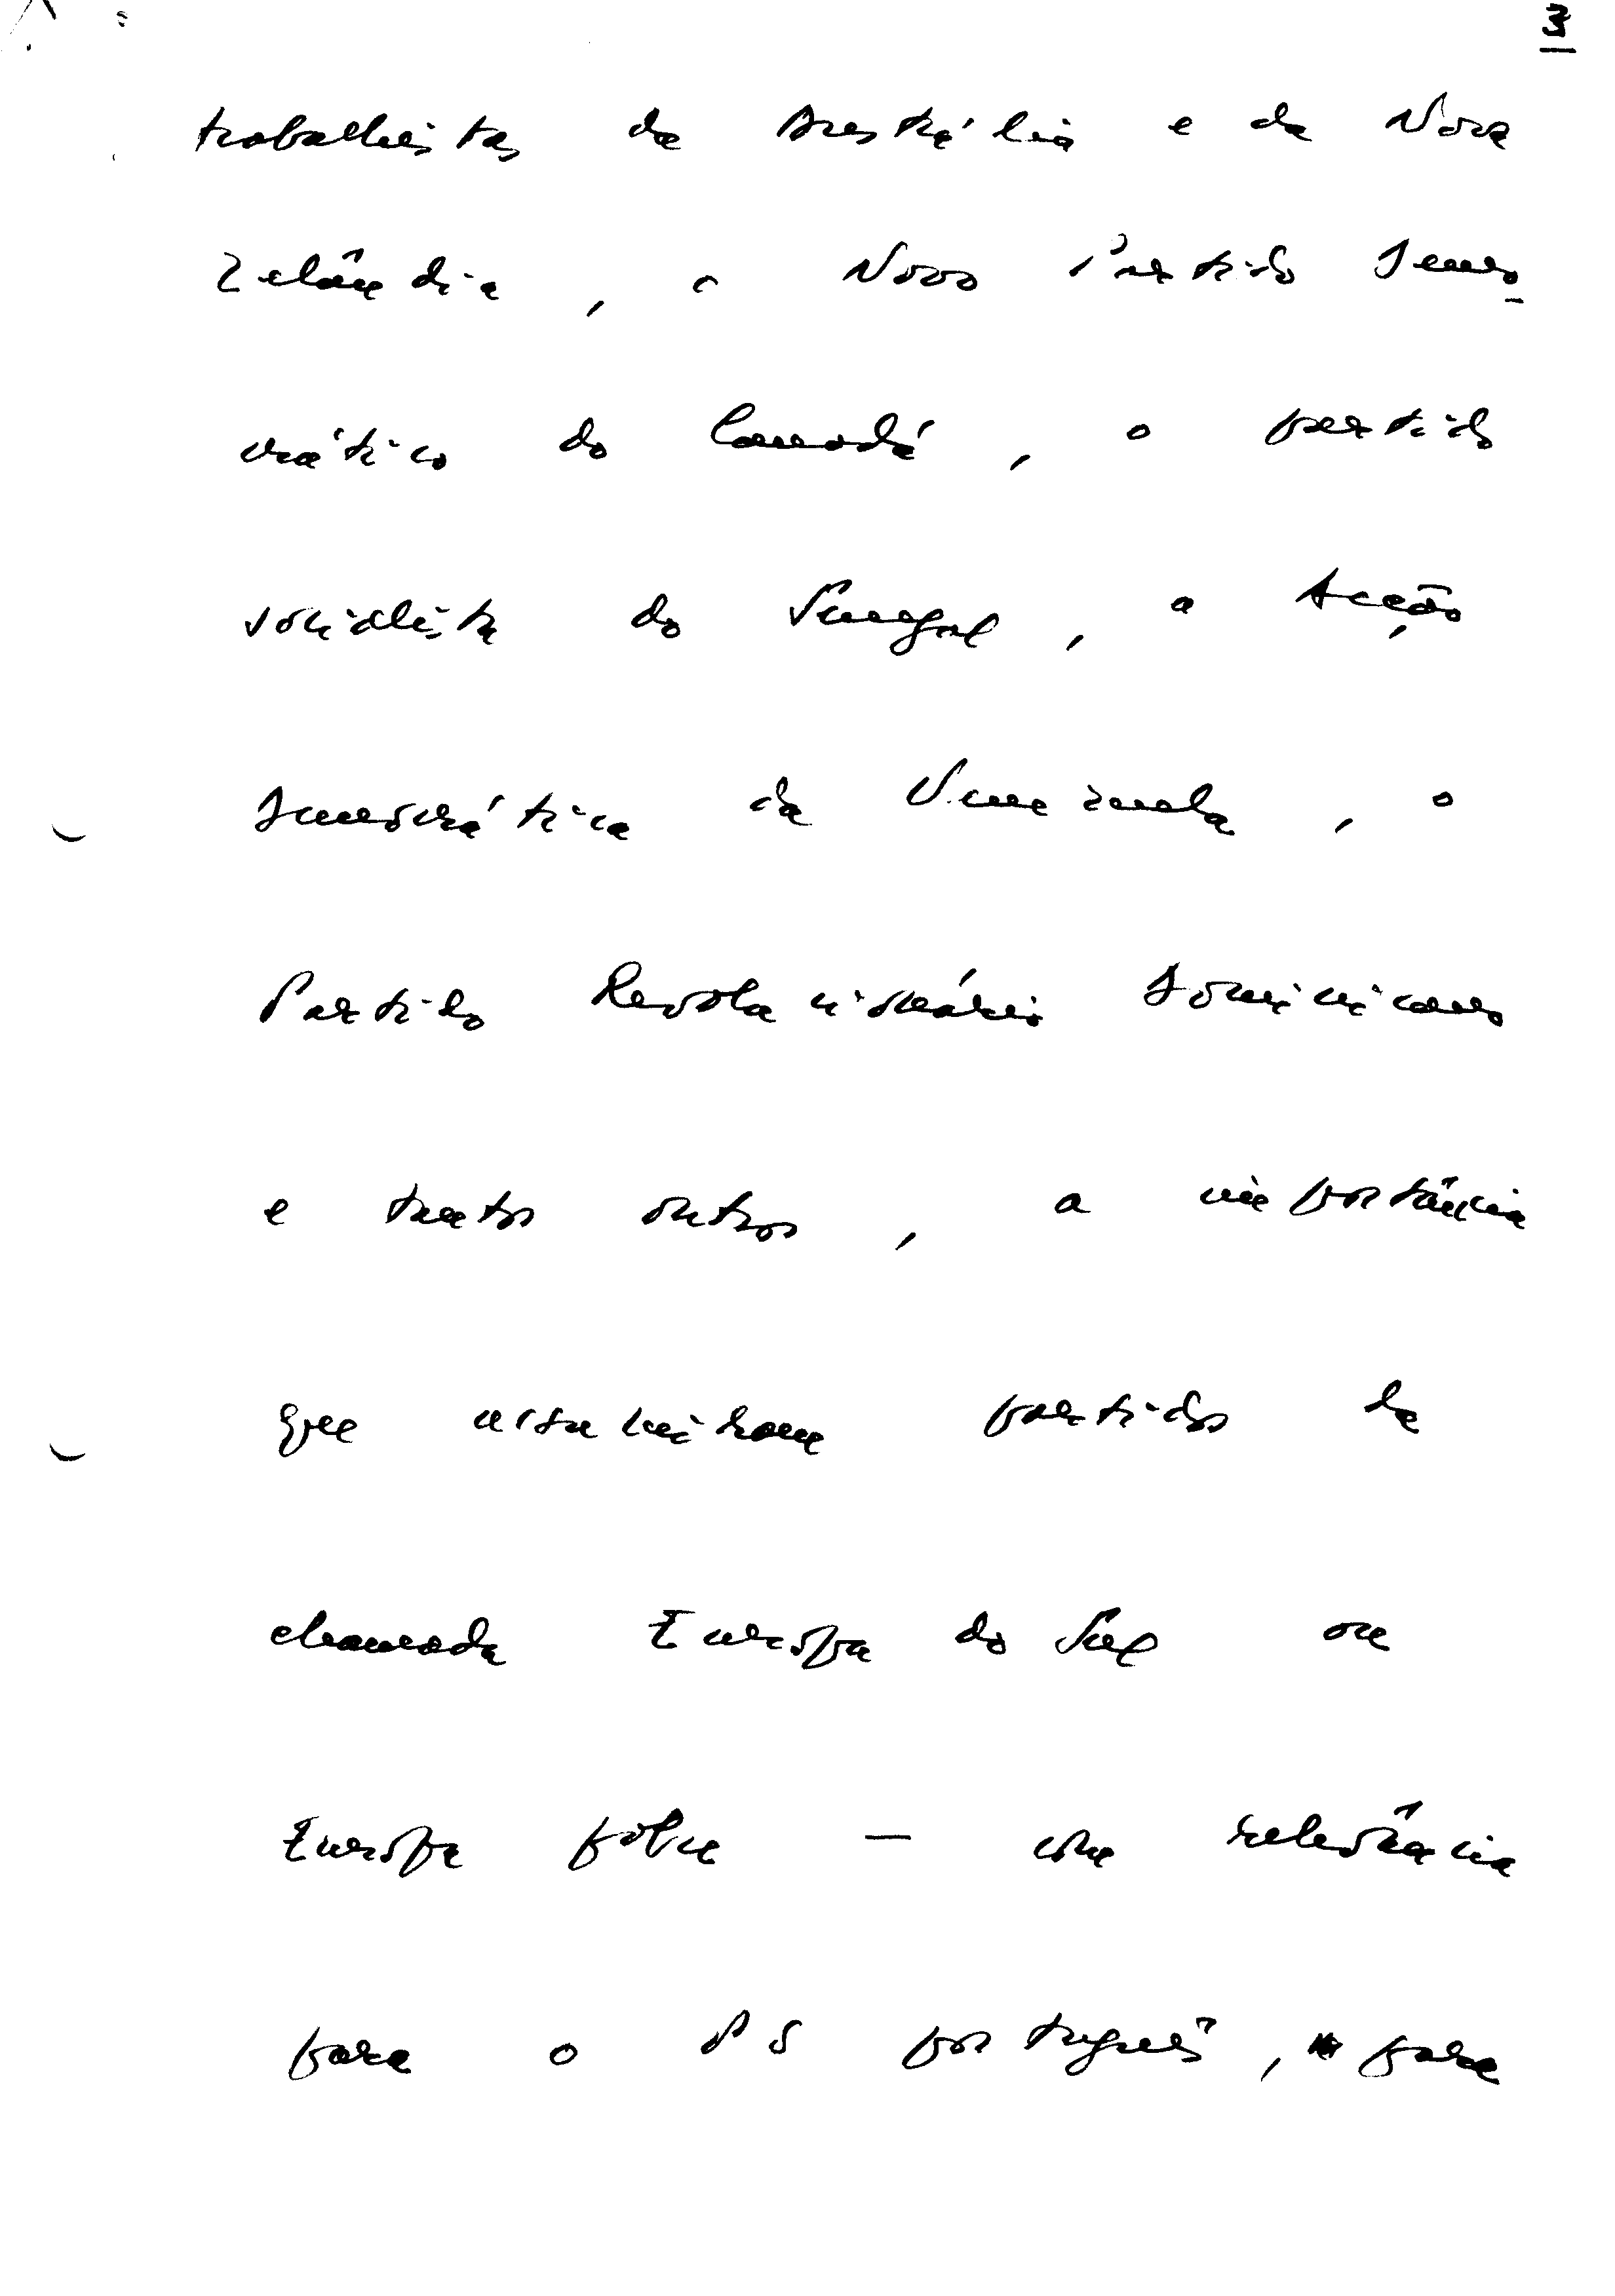 3
trabalhistas da Austrália e da Nova
Zelândia, o Novo Partido Demo-
crático do Canadá, o partido
socialista do Senegal, a Acção
Democrática da Venezuela, o
Partido Revolucionário Dominicano
e tantos outros, a importância
que assumiram partidos da
chamada Europa do Sul ou
Europa pobre — com relevância
para o PS português, para